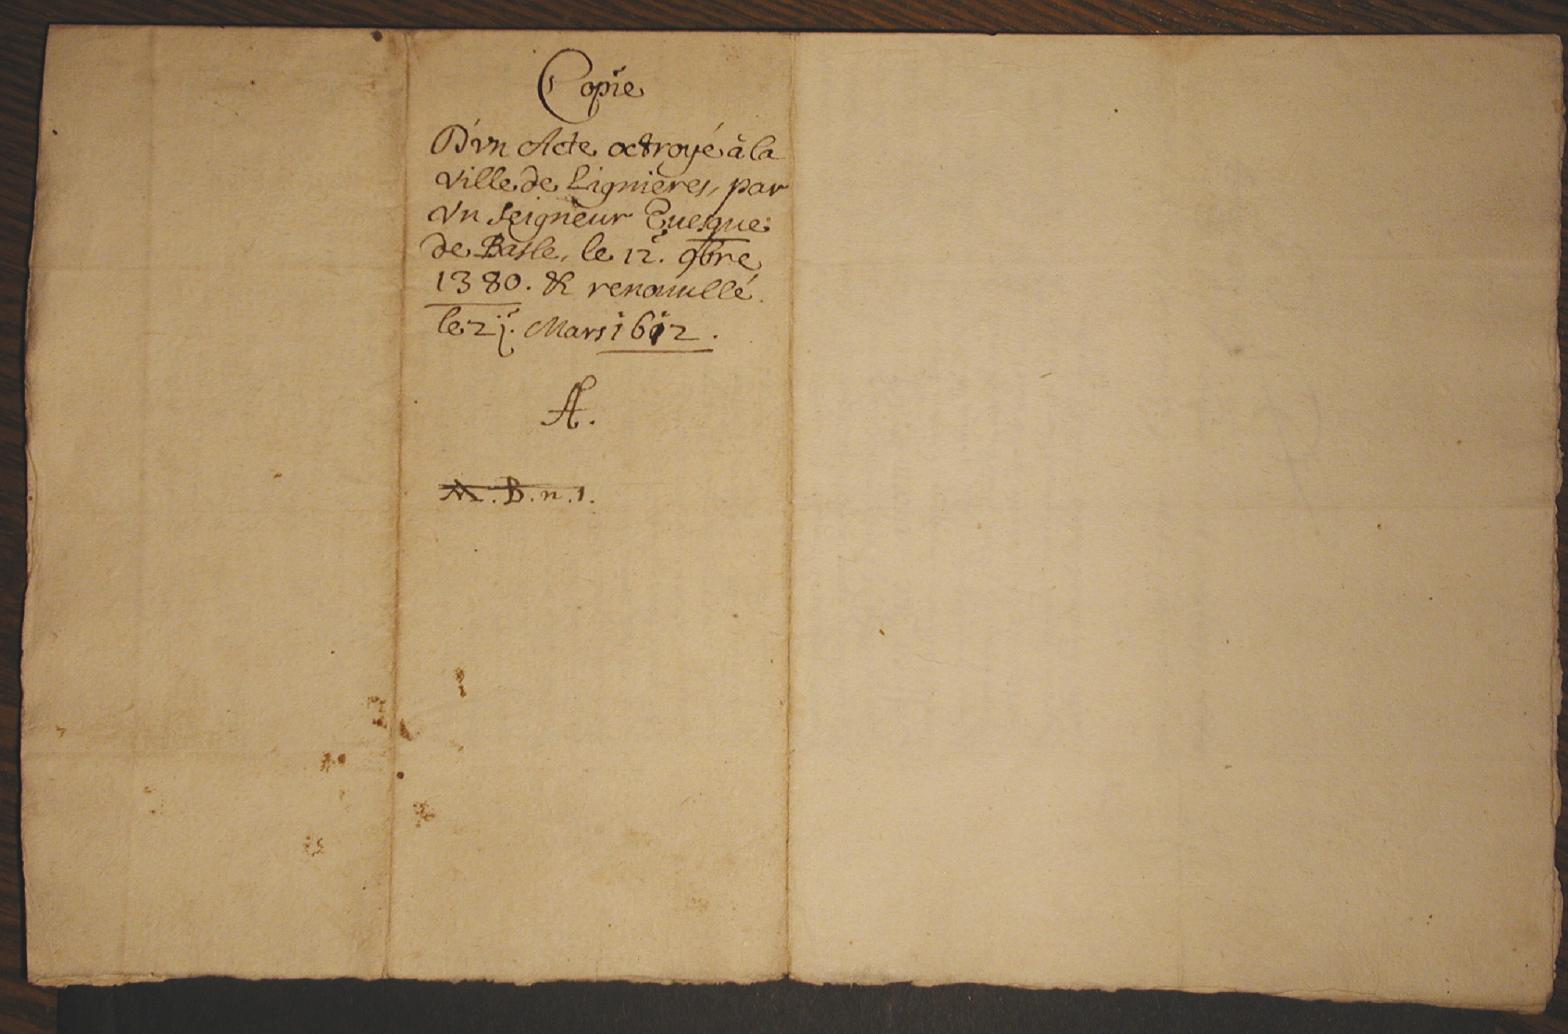 Copie
D'vn Acte octroyé à la
Ville de Lignieres, par
Vn Seigneur Euesque
de Basle, le 12e. 9bre
1380. & renouuellé
le 2j. Mars 1612.
A.
A. D. n. 1.